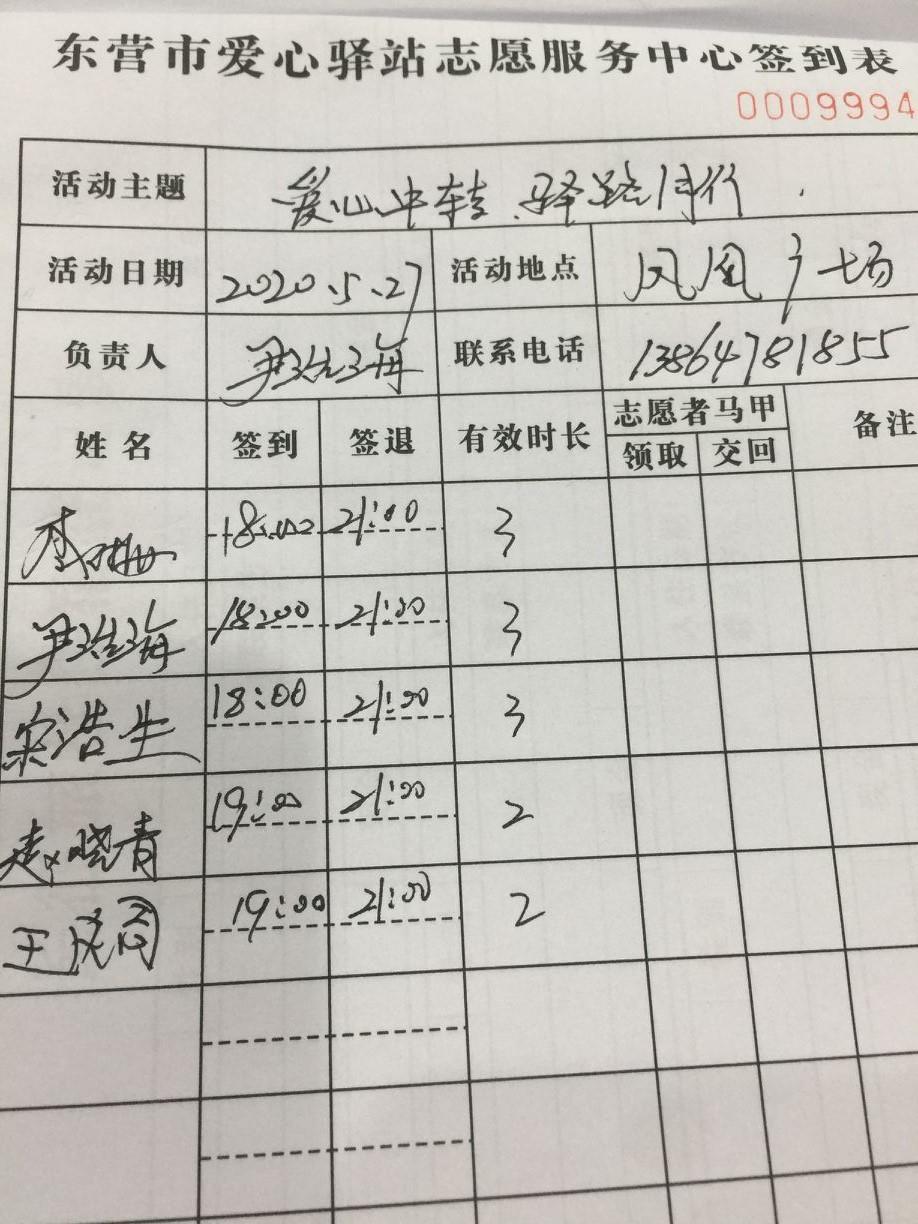 东营市爱心驿站志愿服务中心签到表
0009994
活动主题 爱心中转 驿路同行.
活动日期 2020.5.27 活动地点 凤凰广场
负责人 尹浩海 联系电话 13864781855
姓名 签到 签退 有效时长 志愿者马甲 备注
领取 交回
李 18:00 21:00 3
尹浩海 18:00 21:00 3
宋浩生 18:00 21:00 3
赵晓青 19:00 21:00 2
王成 19:00 21:00 2